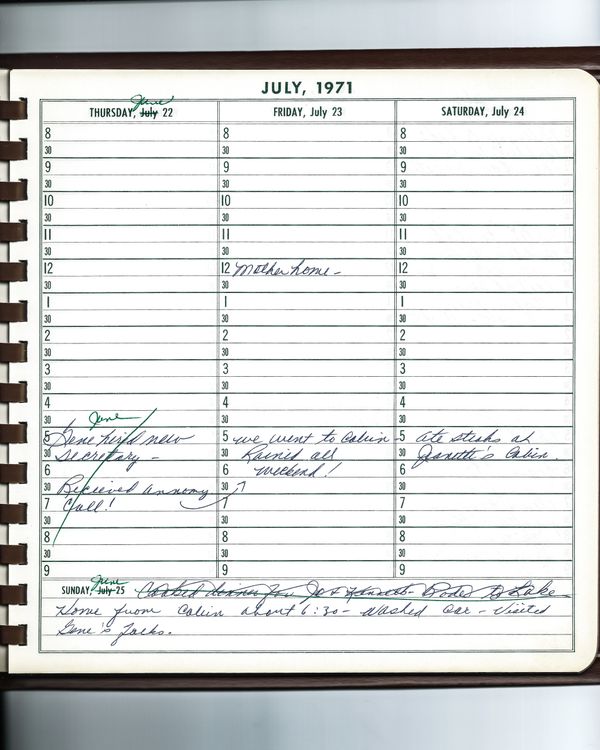 JULY, 1971
June
THURSDAY, July 22
FRIDAY, July 23
SATURDAY, July 24
8 8 8
30 30 30
9 9 9
30 30 30
10 10 10
30 30 30
11 11 11
30 30 30
12 12 Mother home - 12
30 30 30
1 1 1
30 30 30
2 2 2
30 30 30
3 3 3
30 30 30
4 4 4
30 June 30 30
5 Gene hired new 5 we went to Cabin 5 ate steaks at
30 Secretary - 30 Rained all 30 Jeanette's Cabin.
6 6 weekend! 6
30 Recieved annomy 30 30
7 Call! 7 7
30 30 30
8 8 8
30 30 30
9 9 9
June
SUNDAY, July 25 Cooked dinner for Jo + Rode to Lake
Home from Cabin about 6:30 - Washed Car - Visited
Gene's folks.